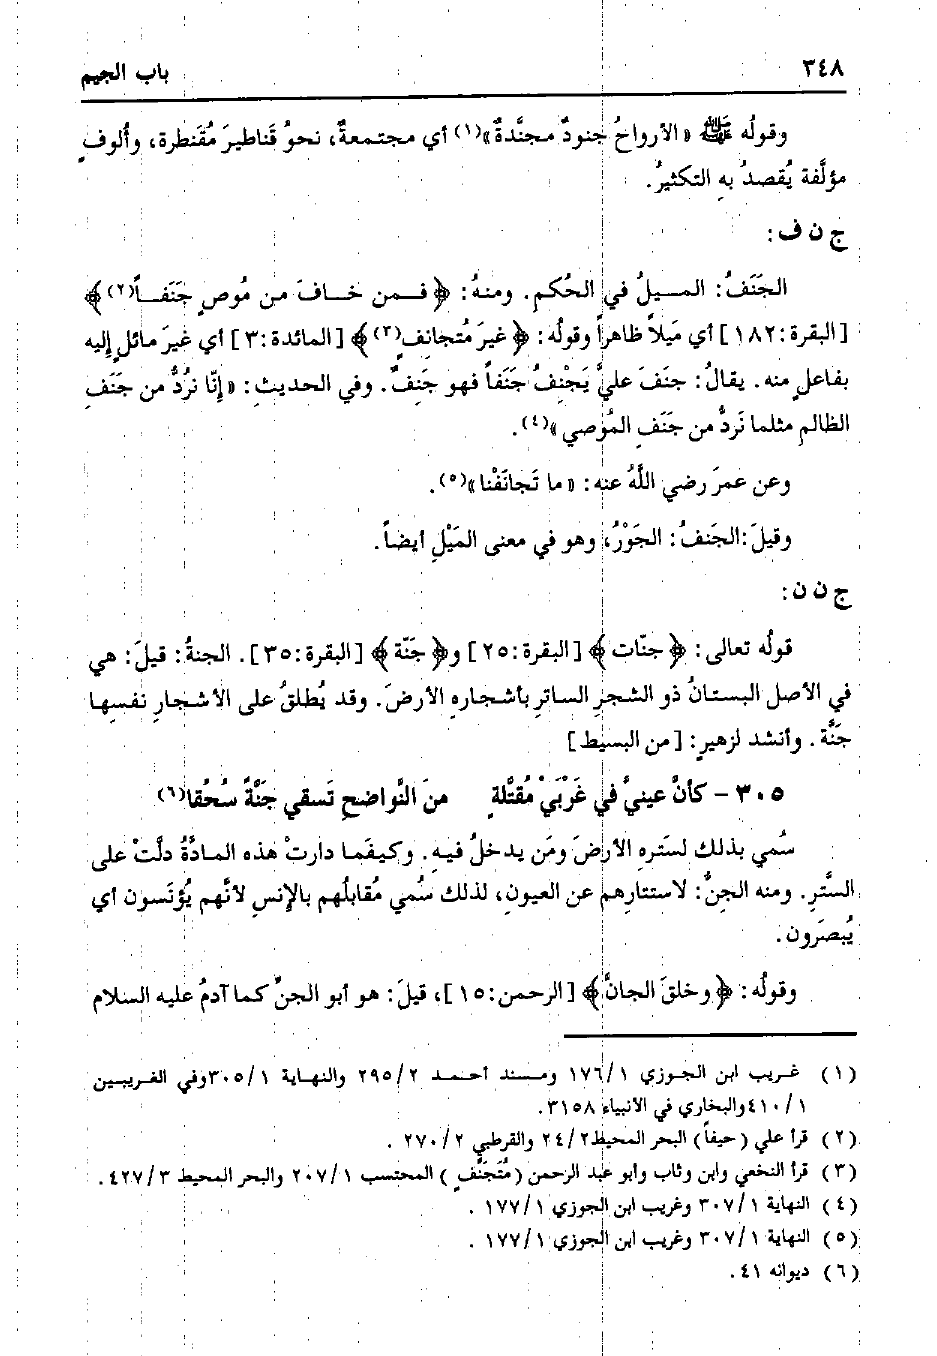 ٣٤٨
باب الجيم
وقولُه ﷺ «الأرواحُ جنودٌ مجنَّدةٌ»(١) أي مجتمعةٌ، نحوُ قَناطيرَ مُقَنطرة، وأُلوفٍ
مؤلَّفة يُقصدُ بهِ التكثيرُ.
ج ن ف:
الجَنَفُ: الميلُ في الحُكمِ. ومنهُ: ﴿فمن خافَ من مُوصٍ جَنَفاً(٢)﴾
[البقرة:١٨٢] أي مَيلاً ظاهراً وقولُه: ﴿غيرَ مُتجانِفٍ(٣)﴾ [المائدة:٣] أي غيرَ مائلٍ إليه
بفاعلٍ منه. يقالُ: جنَفَ عليَّ يَجْنِفُ جَنَفاً فهو جَنِفٌ. وفي الحديثِ: «إنّا نرُدُّ من جَنَفِ
الظالمِ مثلما نَردُّ من جَنَفِ المُوصي»(٤).
وعن عمرَ رضي اللَّهُ عنه: «ما تَجانَفْنا»(٥).
وقيلَ:الجَنفُ: الجَوْرُ، وهو في معنى المَيْلِ أيضاً.
ج ن ن:
قولُه تعالى: ﴿جنّات﴾ [البقرة:٢٥] و﴿جنّة﴾ [البقرة:٣٥]. الجنةُ: قيلَ: هي
في الأصل البستانُ ذو الشجرِ الساترِ بأشجارِهِ الأرضَ. وقد يُطلقُ على الأشجارِ نفسِها
جَنَّة. وأنشد لزهيرٍ: [من البسيط]
٣٠٥ - كأنَّ عينيَّ في غَرْبَيْ مُقتَّلةٍ منَ النَّواضحِ تَسقي جَنَّةً سُحُقا(٦)
سُمي بذلك لسَترِه الأرضَ ومَن يدخلُ فيهِ. وكيفَما دارتْ هذه المادَّةُ دلَّتْ على
السَّترِ. ومنه الجنُّ: لاستتارِهم عن العيونِ، لذلك سُمي مُقابلُهم بالإنسِ لأنَّهم يُؤنَسون أي
يُبصَرون.
وقولُه: ﴿وخلقَ الجانَّ﴾ [الرحمن:١٥]، قيلَ: هو أبو الجنِّ كما آدمُ عليه السلام
(١) غريب ابن الجوزي ١/١٧٦ ومسند أحمد ٢/٢٩٥ والنهاية ١/٣٠٥وفي الغريبين
١/٤١٠والبخاري في الأنبياء ٣١٥٨.
(٢) قرأ علي (حيفاً) البحر المحيط٢/٢٤ والقرطبي ٢/٢٧٠ .
(٣) قرأ النخعي وابن وثاب وأبو عبد الرحمن (مُتَجَنِّفٍ) المحتسب ١/٢٠٧ والبحر المحيط ٣/٤٢٧.
(٤) النهاية ١/٣٠٧ وغريب ابن الجوزي ١/١٧٧ .
(٥) النهاية ١/٣٠٧ وغريب ابن الجوزي ١/١٧٧ .
(٦) ديوانه ٤١.